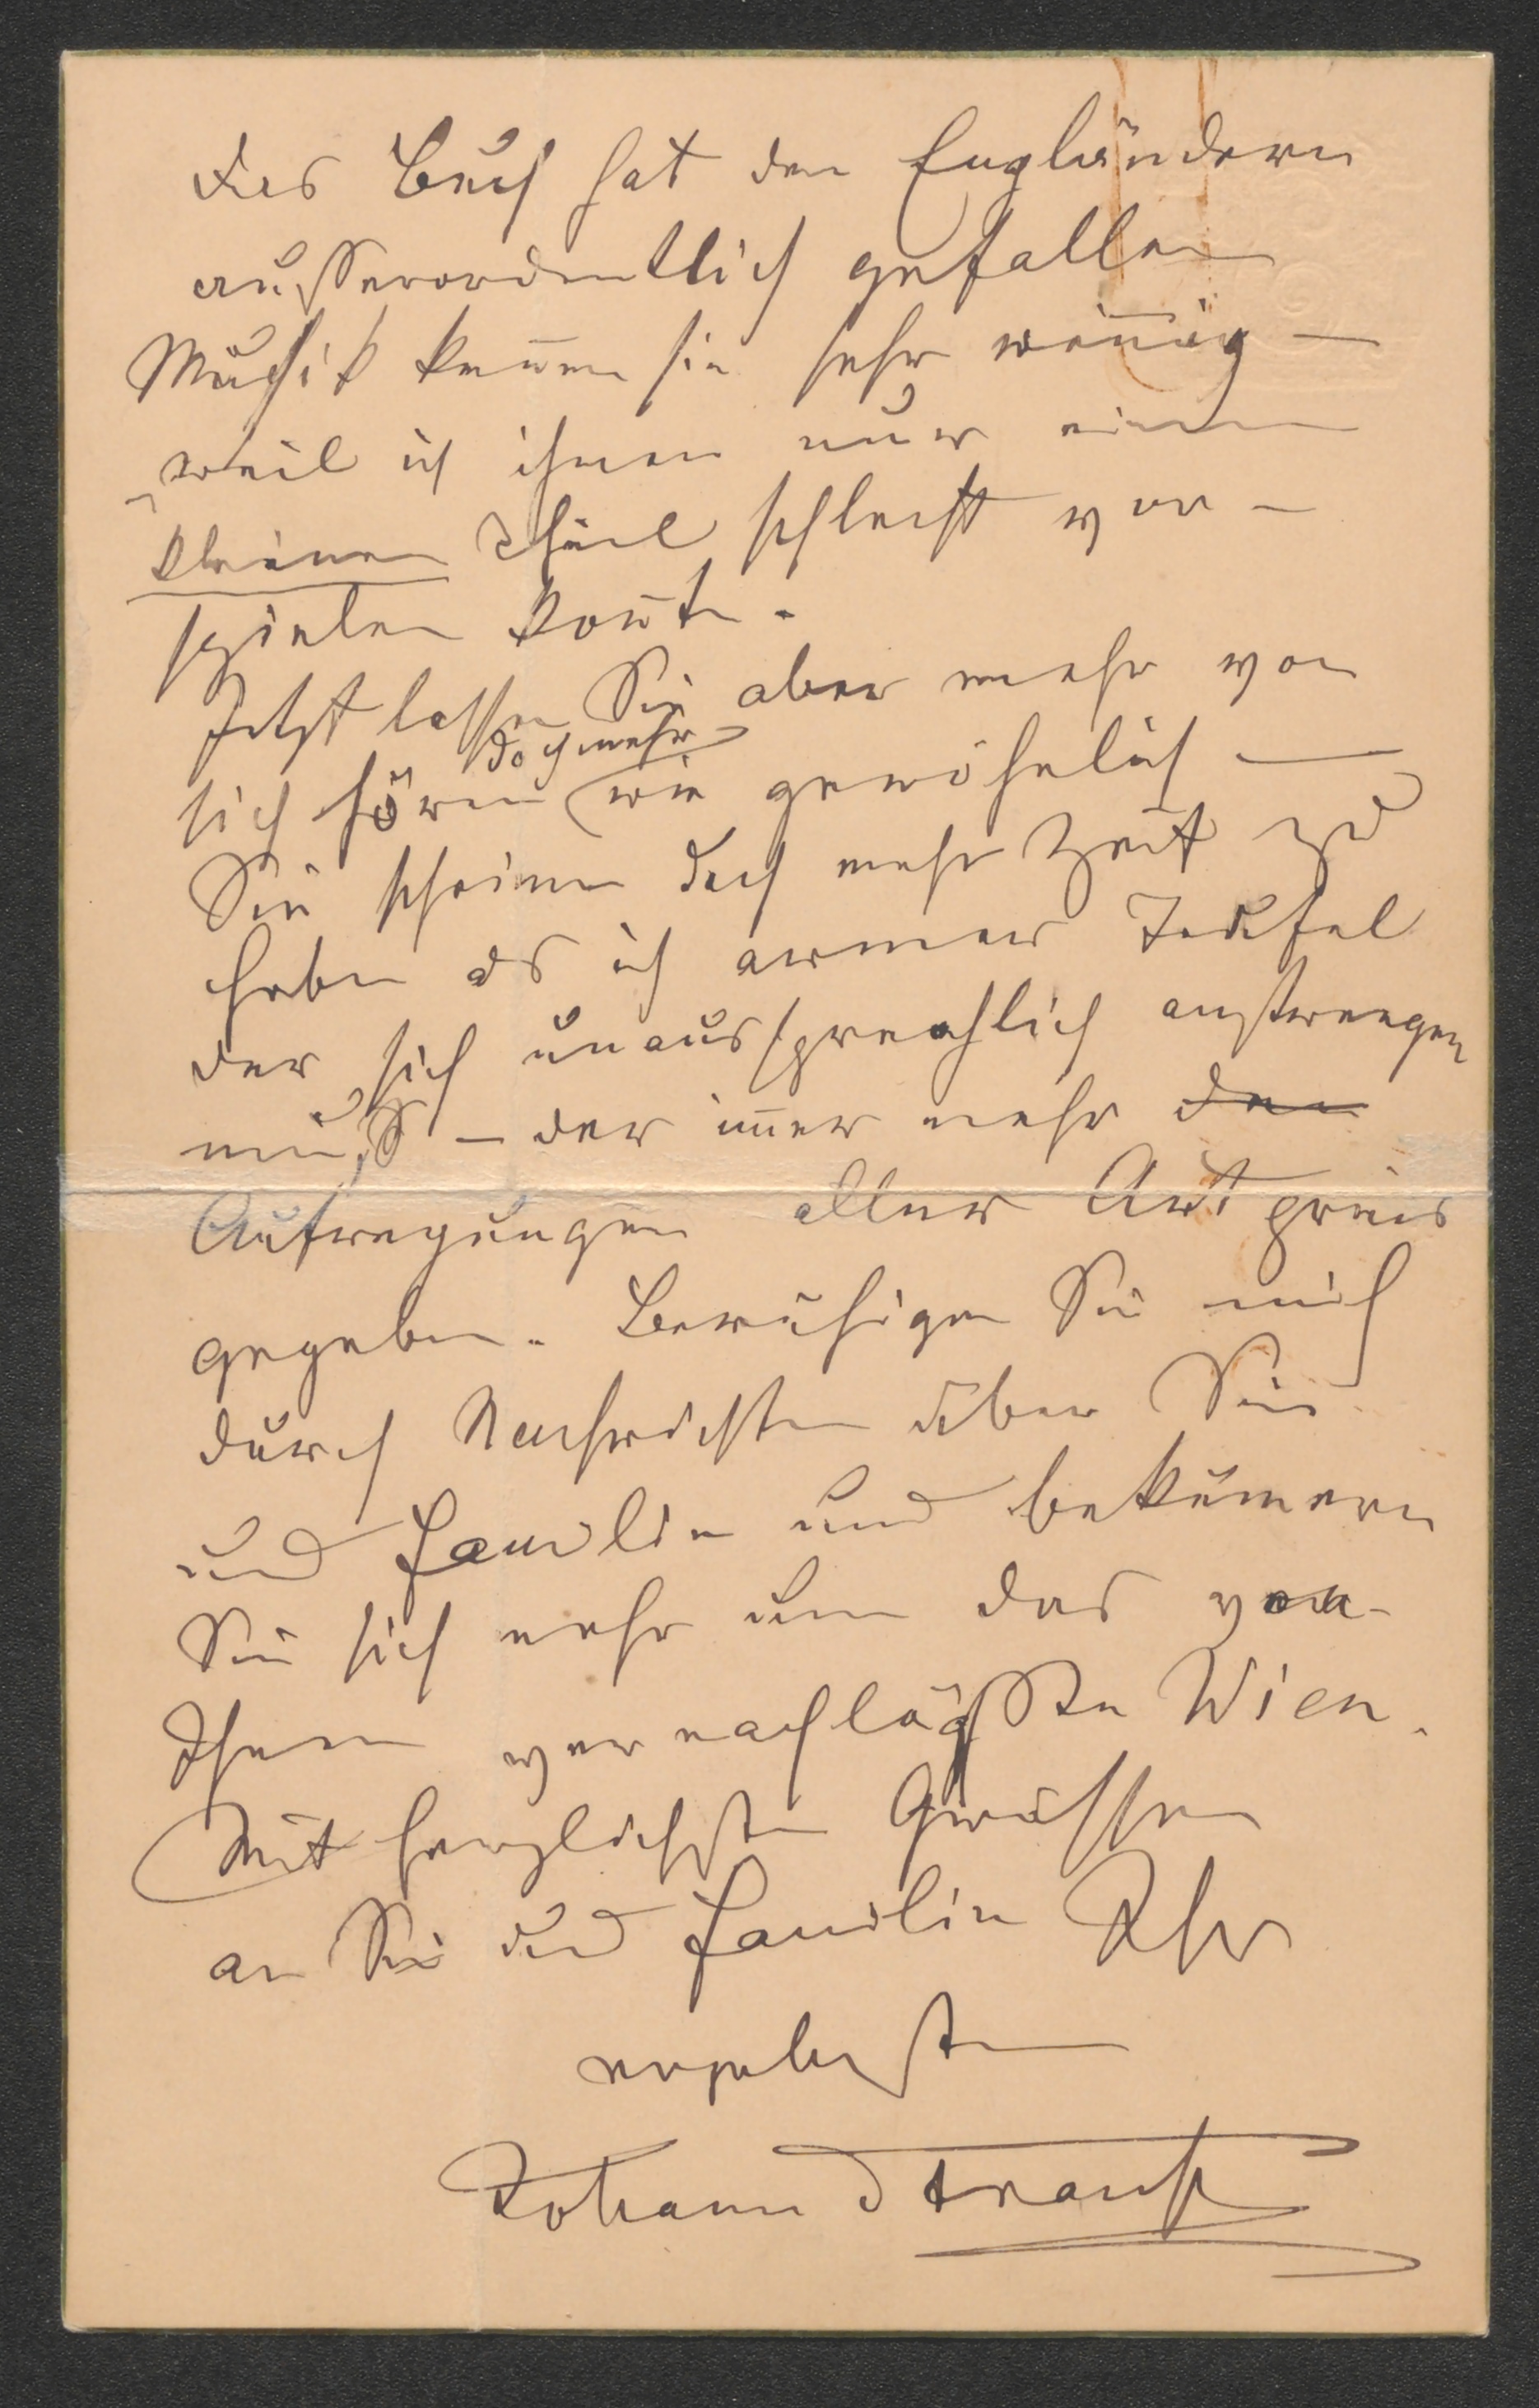 das Buch hat den Engländern
ausserordentlich gefallen
Musik keñen sie sehr wenig —
weil ich ihnen nur einen
kleinen Theil schlecht vor-
spielen koñte.
Jetzt lassen Sie aber mehr von
doch mehr
sich hören wie gewöhnlich —
Sie scheinen doch mehr Zeit zu
haben als ich armer Teufel
der sich unaussprechlich anstrengen
muß — der im̄er mehr den
Aufregungen aller Art preis
gegeben. Beruhigen Sie mich
durch Nachrichten über Sie
und Familie und beküm̄ern
Sie sich mehr um das von
Ihnen vernachläßte Wien.
Mit herzlichsten Grüssen
an Sie und Familie Ihr
ergebenster
Johann Strauss